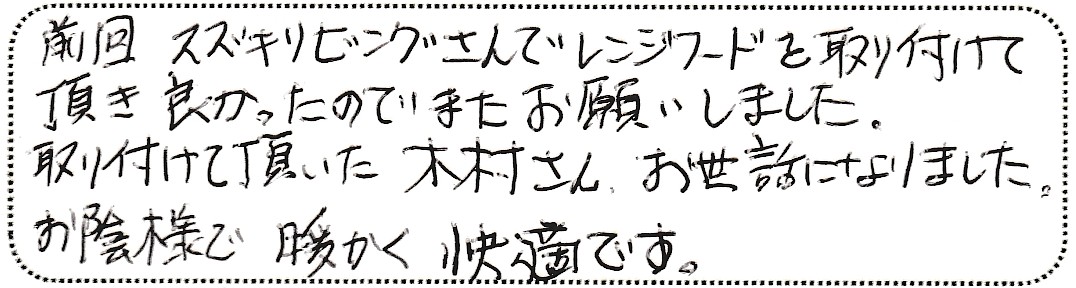 前回 スズキリビングさんでレンジフードを取り付けて
頂き良かったのでまたお願いしました。
取り付けて頂いた 木村さん、お世話になりました。
お陰様で 暖かく 快適です。